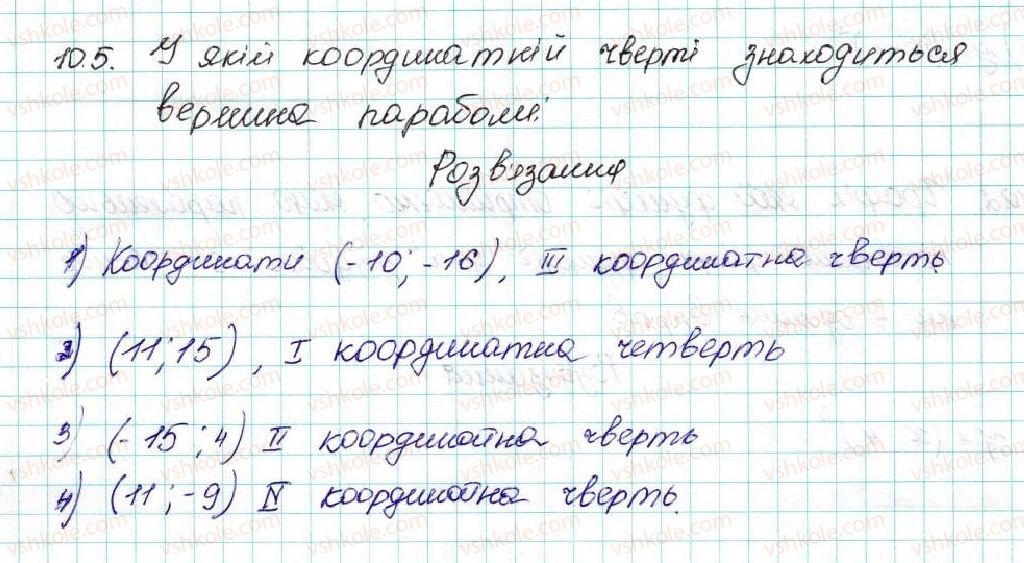 10.5. У якій координатній чверті знаходиться
вершина параболи:
Розв'язання
1) Координати (-10; -16), III координатна чверть
2) (11; 15), I координатна четверть
3) (-15; 4) II координатна чверть
4) (11; -9) IV координатна чверть.